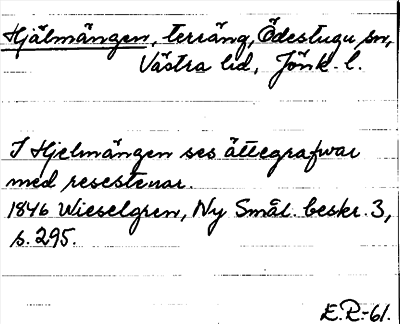 Hjälmängen, terräng, Ödestugu sn,
Västra hd, Jönk. l.
I Hjelmängen ses ättegrafwar
med resestenar.
1846 Wieselgren, Ny Smål. beskr. 3,
s. 295.
E.R.-61.